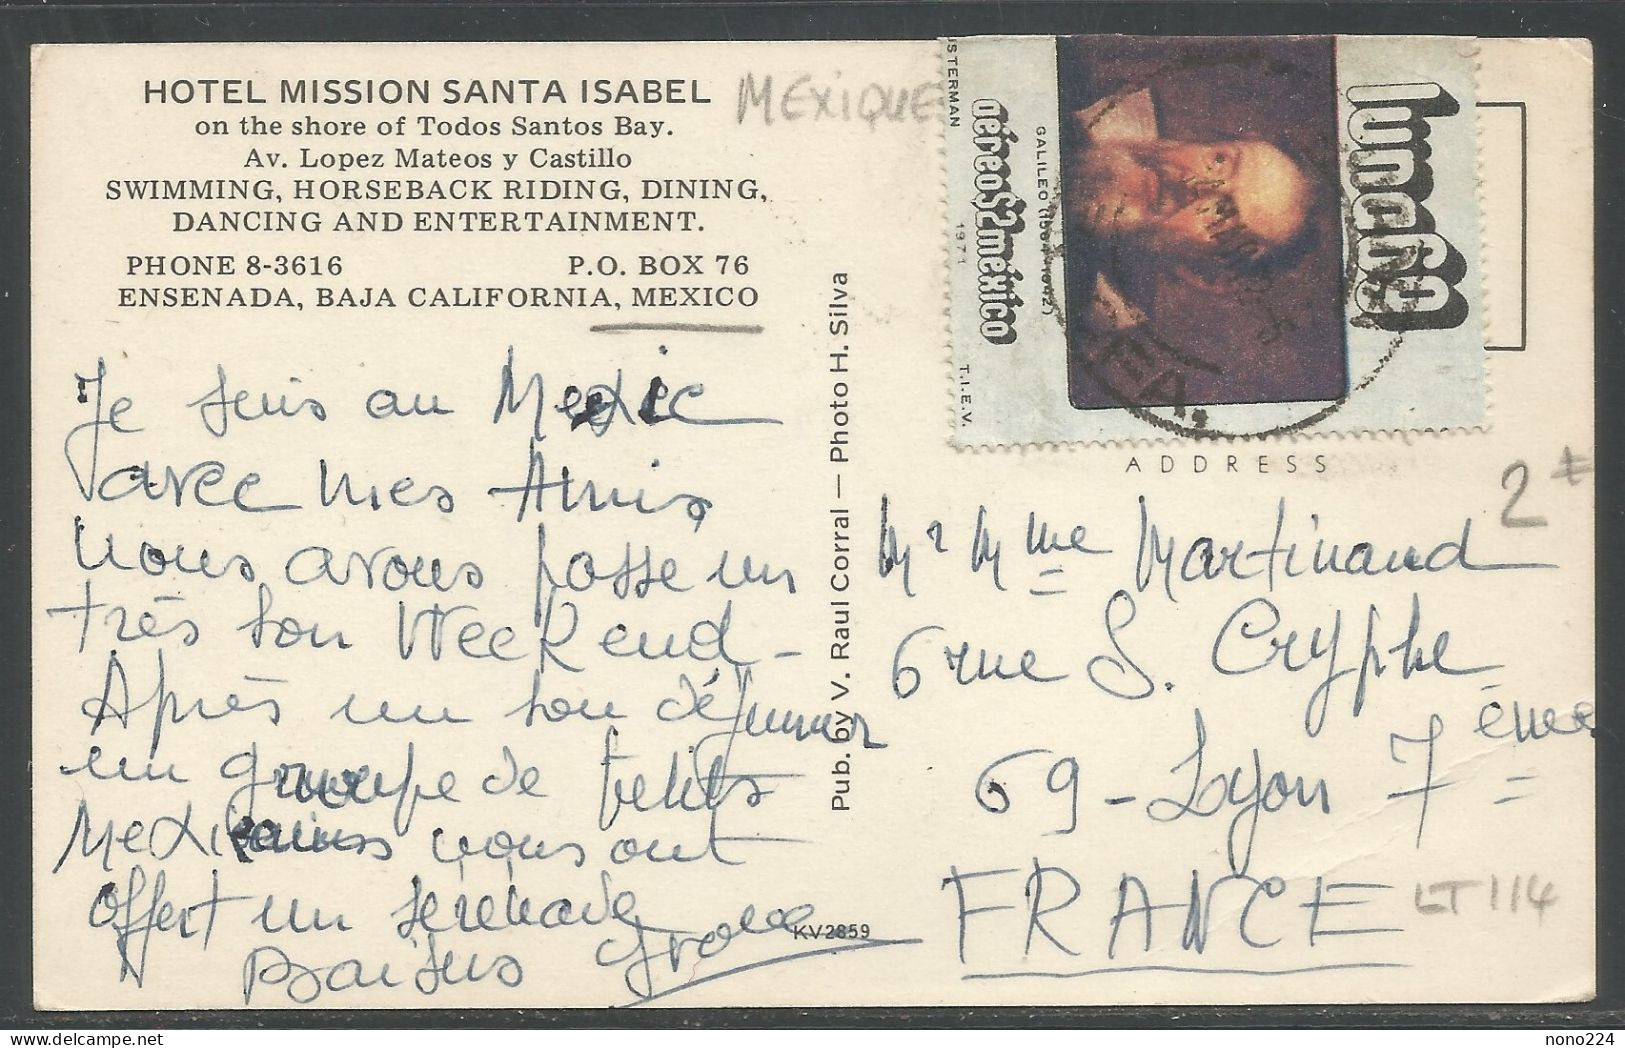 HOTEL MISSION SANTA ISABEL
on the shore of Todos Santos Bay.
Av. Lopez Mateos y Castillo
SWIMMING, HORSEBACK RIDING, DINING,
DANCING AND ENTERTAINMENT.
PHONE 8-3616 P.O. BOX 76
ENSENADA, BAJA CALIFORNIA, MEXICO
MEXIQUE
Je suis au Mexic
avec mes Amis
nous avons passé un
très bon Week end -
Après un bon déjeuner
un groupe de petits
Mexicains nous ont
offert un sérénade
Baisers
KV2859
Pub. by V. Raul Corral — Photo H. Silva
STERMAN
aéreo $2 mexico
GALILEO (1564-1642)
1971
T.I.E.V.
ADDRESS
2
Mr Mme Martinaud
6 rue S. Cryphe
69 - Lyon 7ème
FRANCE
LT114
delcampe.net
nono224